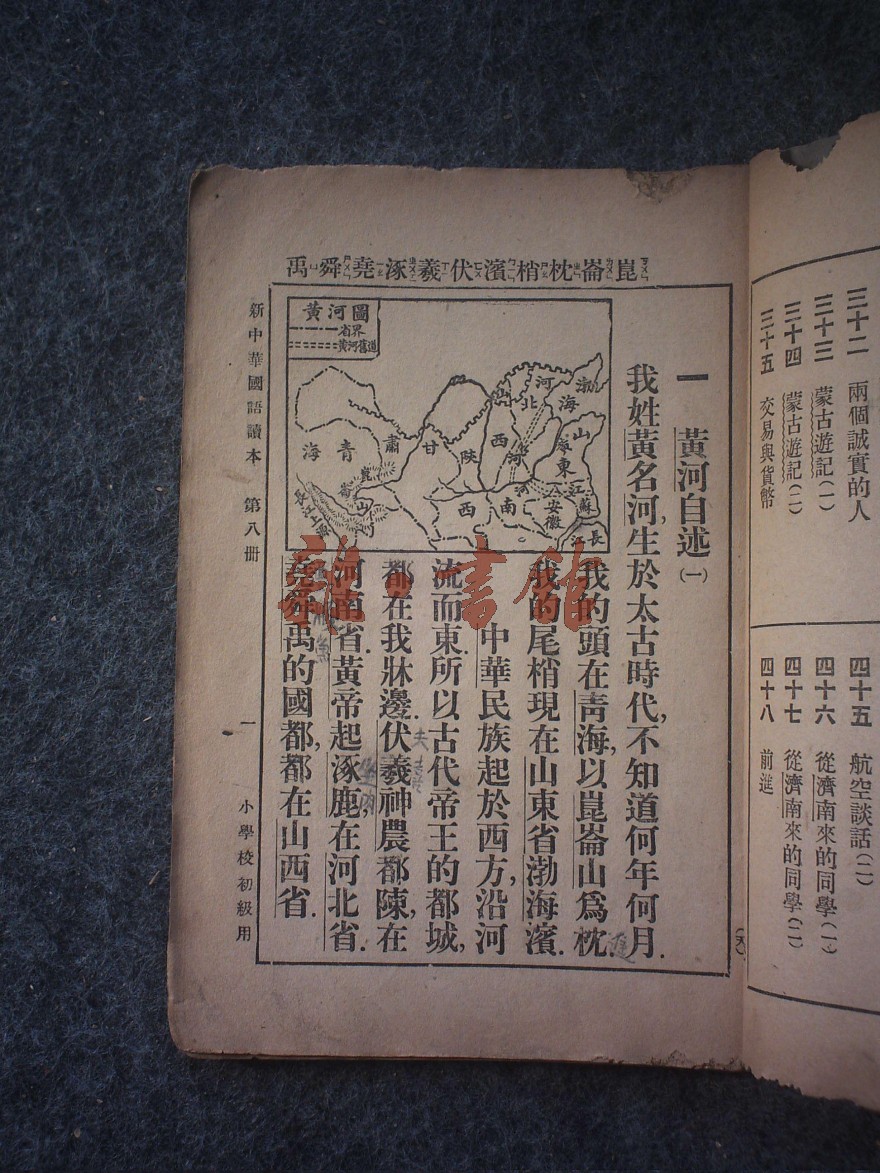 三十二　兩個誠實的人
三十三　蒙古遊記(一)
三十四　蒙古遊記(二)
三十五　交易與貨幣
四十五　航空談話(二)
四十六　從濟南來的同學(一)
四十七　從濟南來的同學(二)
四十八　前進
崑崙枕梢濱伏羲涿堯舜禹
一　黃河自述(一)
我姓黃名河,生於太古時代,不知道何年何月.
我的頭在青海,以崑崙山爲枕.
我的尾梢現在山東省渤海濱.
中華民族起於西方,沿河
流而東.所以古代帝王的都城,
都在我牀邊.伏羲神農都陳,在
河南省.黃帝起涿鹿,在河北省.
堯舜禹的國都,都在山西省.
黃河圖
省界
黃河舊道
渤海
河北
山東
山西
河南
江蘇
安徽
長江
陝西
甘肅
青海
崑崙山
長江上源
新中華國語讀本　第八册
一
小學校初級用
雜·書館